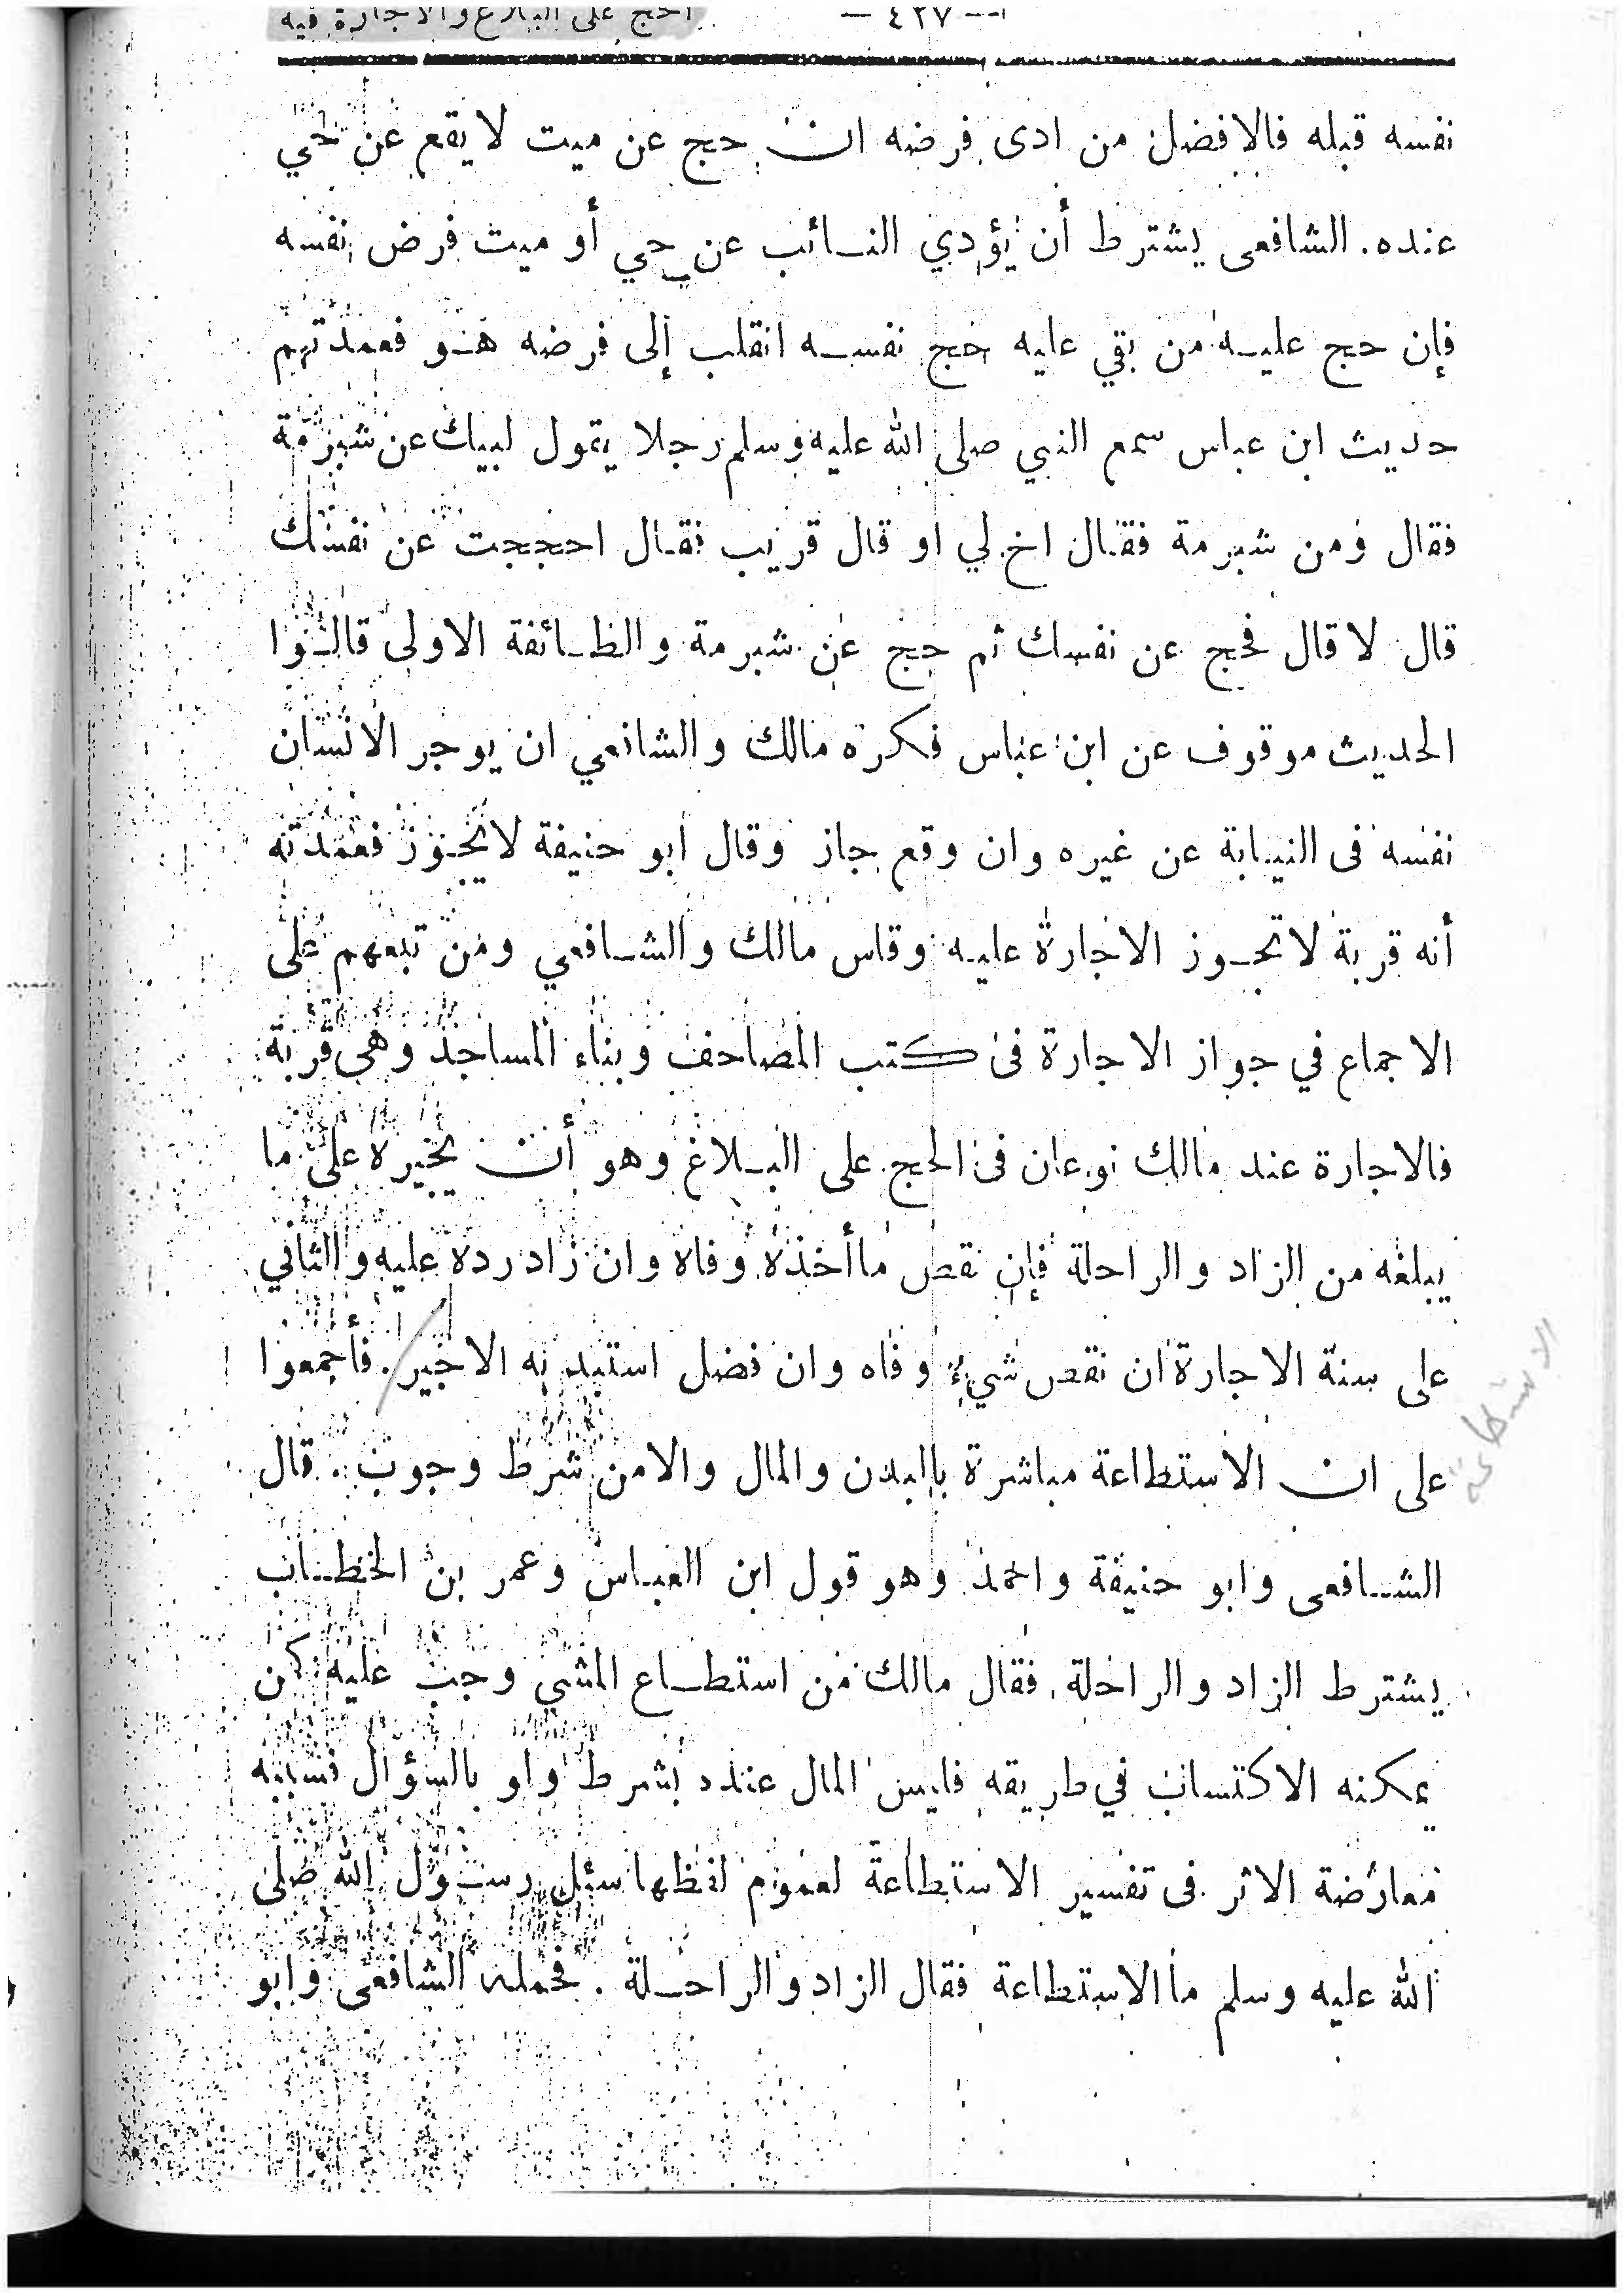 — ٤٢٧ — الحج على البلاغ والاجارة فيه
نفسه قبله فالافضل من ادى فرضه ان حج عن ميت لا يقع عن حي
عنده. الشافعى يشترط أن يؤدي النائب عن حي أو ميت فرض نفسه
فإن حج عليه من بقي عليه حج نفسه انقلب إلى فرضه هو فعمدتهم
حديث ابن عباس سمع النبي صلى الله عليه وسلم رجلا يقول لبيك عن شبرمة
فقال ومن شبرمة فقال اخ لي او قال قريب فقال احججت عن نفسك
قال لا قال فحج عن نفسك ثم حج عن شبرمة والطائفة الاولى قالوا
الحديث موقوف عن ابن عباس فكره مالك والشافعي ان يوجر الانسان
نفسه فى النيابة عن غيره وان وقع جاز وقال أبو حنيفة لا يجوز فعمدته
أنه قربة لا تجوز الاجارة عليه وقاس مالك والشافعي ومن تبعهم على
الاجماع في جواز الاجارة فى كتب المصاحف وبناء المساجد وهي قربة
فالاجارة عند مالك نوعان فى الحج على البلاغ وهو أن يخيره على ما
يبلغه من الزاد والراحلة فإن نقص ما أخذه وفاه وان زاد رده عليه والثاني
على سنة الاجارة ان نقص شيء وفاه وان فضل استبد به الاجير. فأجمعوا
على ان الاستطاعة مباشرة بالبدن والمال والامن شرط وجوب. قال
الاستطاعة
الشافعى وابو حنيفة واحمد وهو قول ابن العباس وعمر بن الخطاب
يشترط الزاد والراحلة. فقال مالك من استطاع المشي وجب عليه كمن
يمكنه الاكتساب في طريقه فليس المال عنده بشرط ولو بالسؤال فسببه
معارضة الاثر فى تفسير الاستطاعة لعموم لفظها سئل رسول الله صلى
الله عليه وسلم ما الاستطاعة فقال الزاد والراحلة. فحمله الشافعى وابو